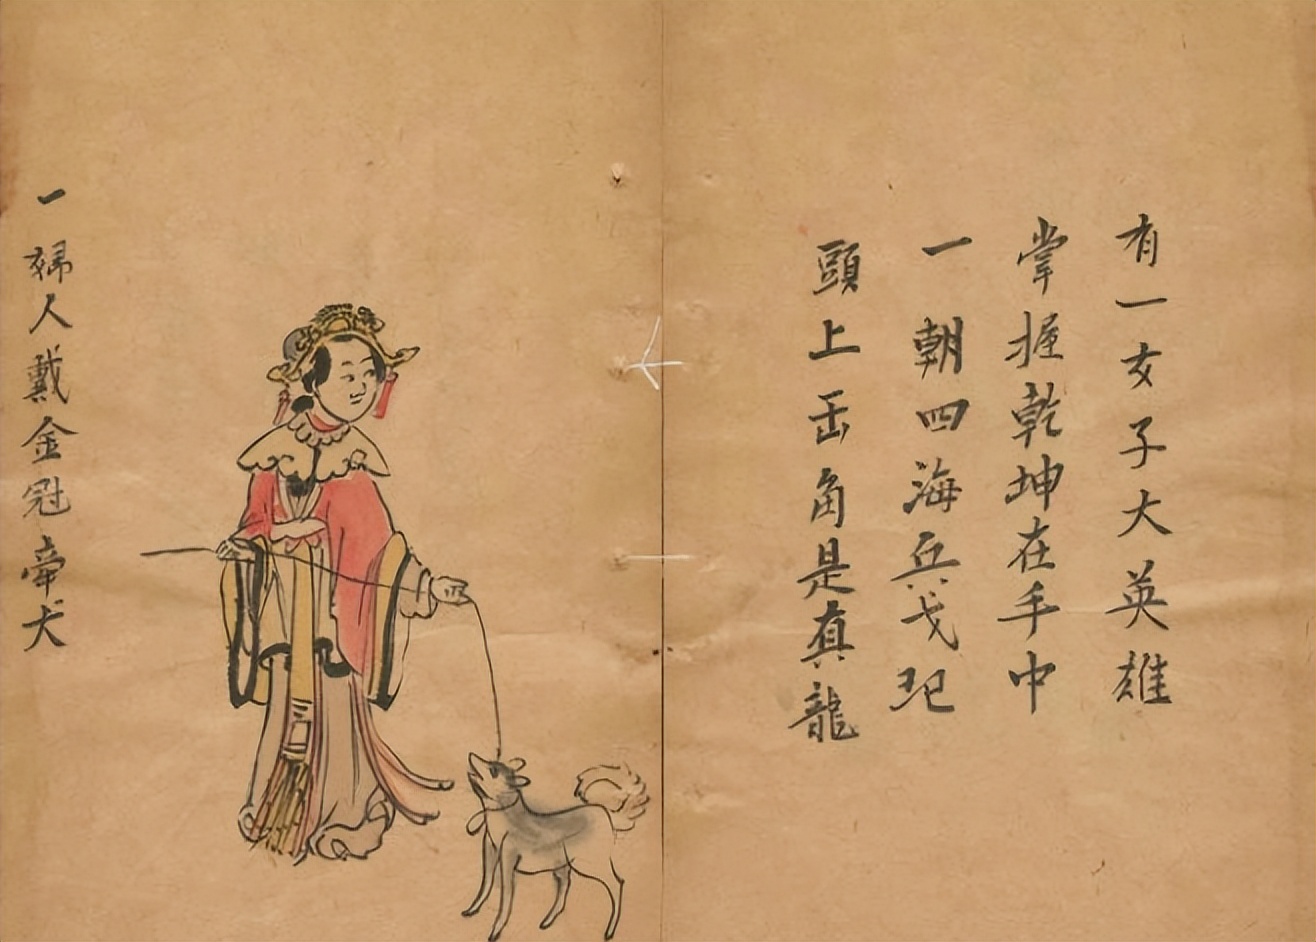 有一女子大英雄
掌握乾坤在手中
一朝四海兵戈起
頭上缶角是真龍
一婦人戴金冠牽犬